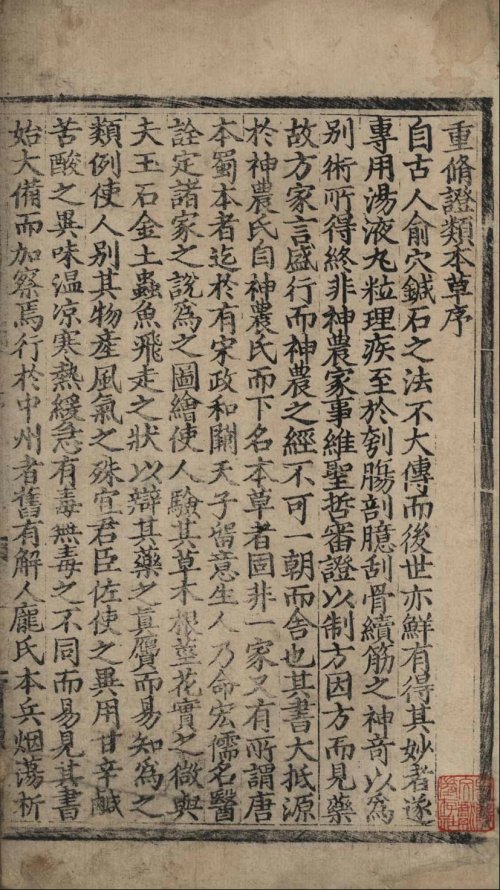 重脩證類本草序
自古人俞穴鍼石之法不大傳而後世亦鮮有得其妙者遂
專用湯液丸粒理疾至於刳膓剖臆刮骨續筋之神奇以爲
別術所得終非神農家事維聖哲審證以制方因方而見藥
故方家言盛行而神農之經不可一朝而舍也其書大抵源
於神農氏自神農氏而下名本草者固非一家又有所謂唐
本蜀本者迄於有宋政和間天子留意生人乃命宏儒名醫
詮定諸家之說爲之圖繪使人驗其草木根莖花實之微與
夫玉石金土蟲魚飛走之狀以辯其藥之真贗而易知爲之
類例使人別其物產風氣之殊宜君臣佐使之異用甘辛鹹
苦酸之異味温凉寒熱緩急有毒無毒之不同而易見其書
始大備而加察焉行於中州者舊有解人龐氏本兵烟蕩析